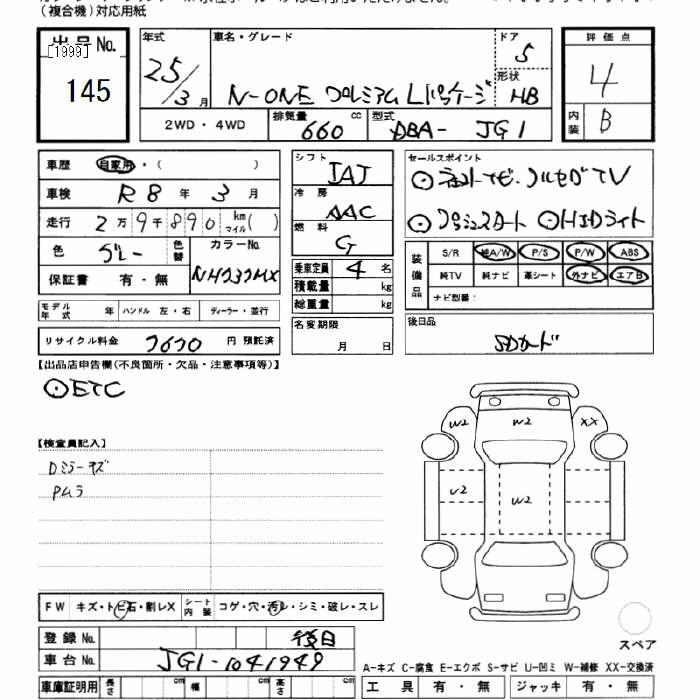 (複合機)対応用紙
出品No.
[1999]
145
年式
25/3月
車名・グレード
N-ONE プレミアム Lパッケージ
ドア
5
形状
HB
2WD・4WD
排気量
660 cc
型式
DBA- JG1
評価点
4
内装
B
車歴 自家用・( )
車検 R8年3月
走行 2万9千890 km マイル( )
色 グレー 色替
カラーNo.
NH737MX
保証書 有・無
モデル年式 年 ハンドル 左・右 ディーラー・並行
リサイクル料金 7670 円 預託済
シフト
IAT
冷房
AAC
燃料
G
乗車定員 4 名
積載量 kg
総重量 kg
名変期限
月 日
セールスポイント
⊙ネオトナビ・フルセグTV
⊙プッシュスタート ⊙HIDライト
装備品
S/R 純A/W P/S P/W ABS
純TV 純ナビ 革シート 外ナビ エアB
ナビ型番:
後日品
SDカード
【出品店申告欄(不良箇所・欠品・注意事項等)】
⊙ETC
【検査員記入】
Dミラーキズ
Pムラ
W2 W2 XX
U2 W2
FW キズ・トビ石・割レX
シート内装 コゲ・穴・汚レ・シミ・破レ・スレ
スペア
登録No. 後日
車台No. JG1-1041949
車庫証明用 長さ cm 幅 cm 高さ cm
A-キズ C-腐食 E-エクボ S-サビ U-凹ミ W-補修 XX-交換済
工具 有・無 ジャッキ 有・無